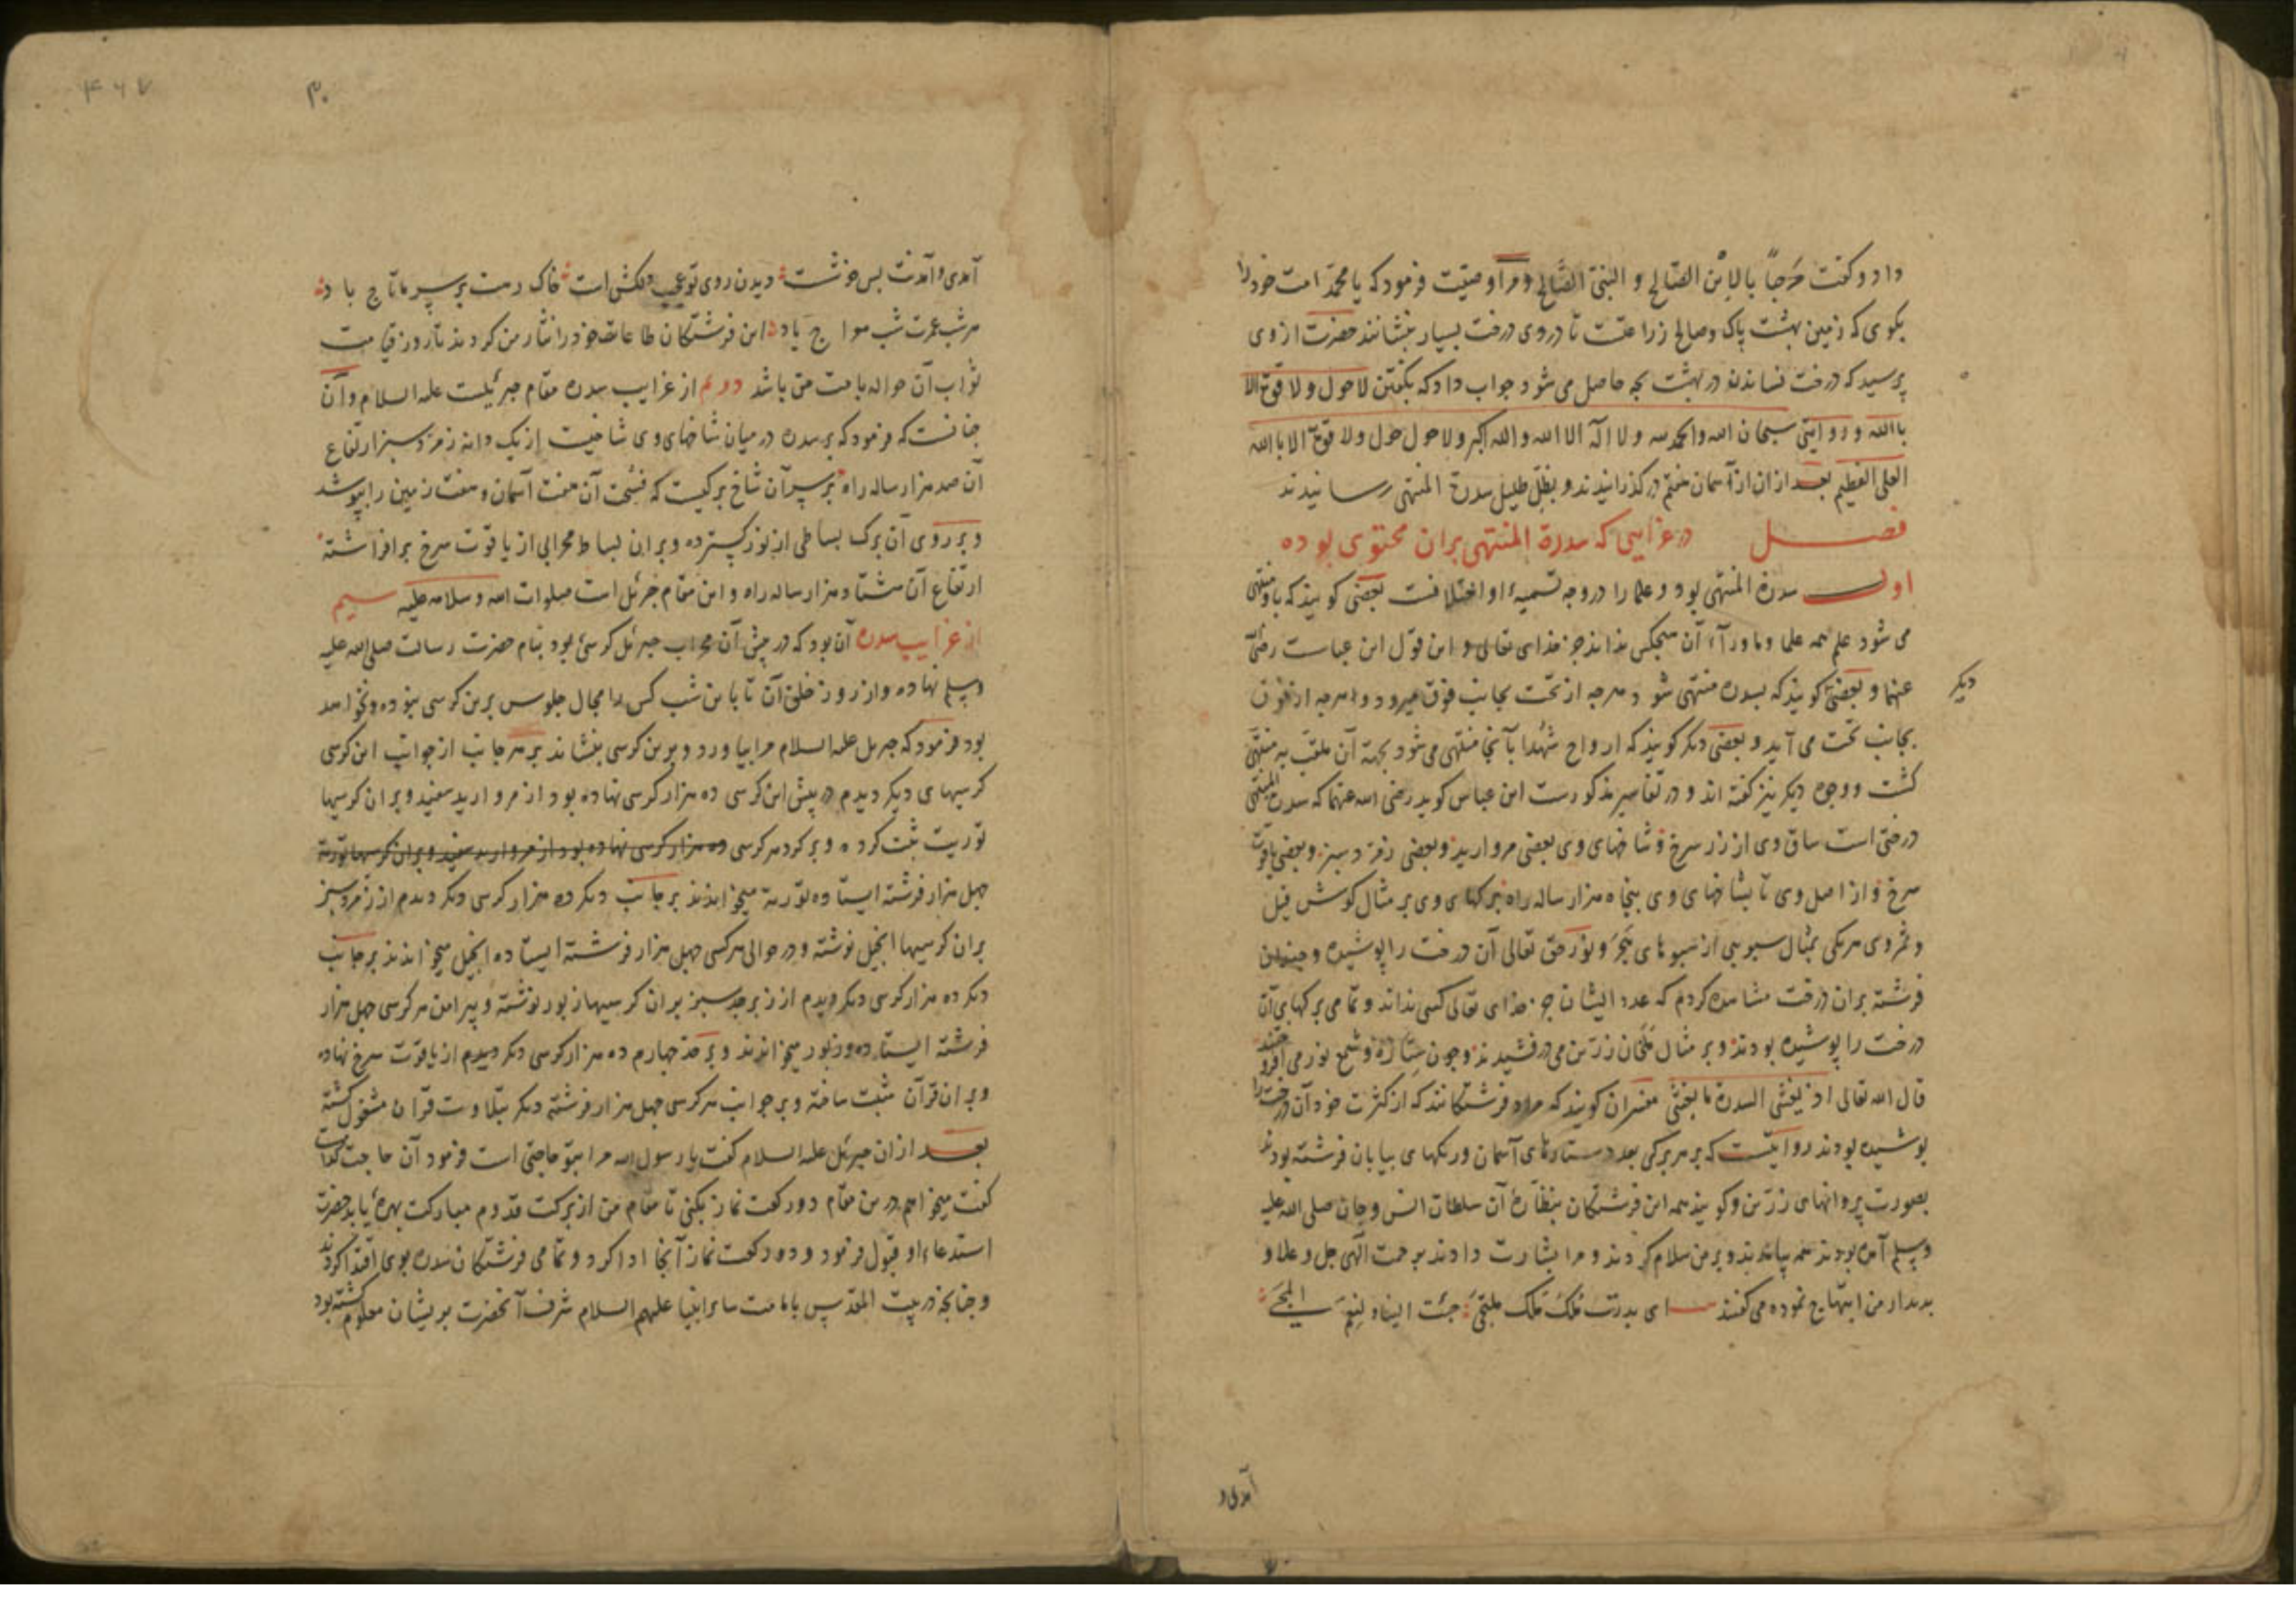 داد و گفت مرحباً بالابن الصالح و النبی الصالح و مرا وصیّت فرمود که یا محمّد امت خود را
بکوی که زمین بهشت پاک و صالح زراعتست تا در وی درخت بسیار بنشانند حضرت از وی
پرسید که درخت نشاندن در بهشت بچه حاصل می شود جواب داد که بکفتن لا حول ولا قوة الا
باالله و روایتی سبحان الله والحمد لله ولا اله الا الله والله اکبر ولا حول حول ولا قوة الا باالله
العلی العظیم بعد از ان از آسمان هفتم در گذرانیدند و بظلّ ظلیل سدرة المنتهی رسانیدند
فصل در غرایبی که سدرة المنتهی بران محتوی بوده
اول سدرة المنتهی بود و علما را در وجه تسمیهٔ او اختلافست بعضی کویند که باو منتهی
می شود علم همه علما و ماورآء آن هیچکس نداند جز خدای تعالی و این قول ابن عباست رضی الله
عنهما و بعضی کویند که بسدره منتهی شود هرچه از تحت بجانب فوق میرود و هرچه از فوق
دیکر
بجانب تحت می آید و بعضی دیکر کویند که ارواح شهدا بآنجا منتهی می شود بجهة آن ملقب به منتهی
کشت و وجوه دیکر نیز کفته اند و در تفاسیر مذکورست ابن عباس کوید رضی الله عنهما که سدرة المنتهی
درختی است ساق وی از زر سرخ و شاخهای وی بعضی مروارید و بعضی زمرد سبز و بعضی یاقوت
سرخ و از اصل وی تا بشاخهای وی پنجاه هزار ساله راه برکهای وی بر مثال کوش فیل
و ثمر وی هریکی بمثال سبویی از سبوهای هَجَر و نور حق تعالی آن درخت را پوشیده و چندان
فرشته بران درخت مشاهده کردم که عدد ایشان جز خدای تعالی کسی نداند و تمامی برکهای آن
درخت را پوشیده بودند و بر مثال ملخان زرین می درفشیدند و چون ستاره و شمع نور می افروختند
قال الله تعالی اذ یغشی السدرة ما یغشی مفسران کویند که مراد فرشتکانند که از کثرت خود آن درخت را
پوشیده بودند روایتست که بر هر برکی بعدد ستارهای آسمان و ریکهای بیابان فرشته بودند
بصورت پروانهای زرین و کویند همه این فرشتکان بنظارهٔ آن سلطان انس و جان صلی الله علیه
وسلم آمده بودند همه بیامدند و بر من سلام کردند و مرا بشارت دادند برحمت الهی جل و علا و
بدیدار من ابتهاج نموده می کفتند ای بدرت فلک ملک ملتجی جئت الینا و لنعم المجی
آمدی و
آمدی و آمدنت بس خوشست دیدن روی تو عجب دلکش است خاک رهت بر سر ما تاج باد
هر شب عمرت شب معراج باد این فرشتکان طاعات خود را نثار من کردند تا روز قیامت
ثواب آن حواله بامت من باشد دوم از غرایب سدره مقام جبرئیلست علیه السلام و آن
چنانست که فرمود که بر سدره در میان شاخهای وی شاخیست از یک دانه زمرد سبز ارتفاع
آن صد هزار ساله راه بر سر آن شاخ برکیست که فسحت آن هفت آسمان و هفت زمین را بپوشد
و بر روی آن برک بساطی از نور کسترده و بر ان بساط محرابی از یاقوت سرخ برافراشته
ارتفاع آن هشتاد هزار ساله راه و این مقام جبرئل است صلوات الله و سلامه علیه سیم
از غرایب سدره آن بود که در پیش آن محراب جبرئل کرسی بود بنام حضرت رسالت صلی الله علیه
وسلم نهاده و از روز خلق آن تا باین شب کس را مجال جلوس برین کرسی نبوده و نخواهد
بود فرمود که جبریل علیه السلام مرا بیاورد و برین کرسی بنشاند بر هر جانب از جوانب این کرسی
کرسیهای دیکر دیدم در پیش این کرسی ده هزار کرسی نهاده بود از مروارید سفید و بر ان کرسیها
توریت ثبت کرده و بر کرد هر کرسی ده هزار کرسی نهاده بود از مروارید سفید و بران کرسیها توریة
چهل هزار فرشته ایستاده توریة میخواندند بر جانب دیکر ده هزار کرسی دیکر دیدم از زمرد سبز
بران کرسیها انجیل نوشته و در حوالی هر کرسی چهل هزار فرشته ایستاده انجیل میخواندند بر جانب
دیکر ده هزار کرسی دیکر دیدم از زبرجد سبز بران کرسیها زبور نوشته و پیرامن هر کرسی چهل هزار
فرشته ایستاده و زبور میخواندند و بر حد چهارم ده هزار کرسی دیکر دیدم از یاقوت سرخ نهاده
و بر ان قرآن مثبت ساخته و بر جوانب هر کرسی چهل هزار فرشته دیکر بتلاوت قرآن مشغول کشته
بعد از ان جبرئل علیه السلام کفت یا رسول الله مرا بتو حاجتی است فرمود آن حاجت کدامست
کفت میخواهم درین مقام دو رکعت نماز بکنی تا مقام من از برکت قدوم مبارکت بهره یابد حضرت
استدعاء او قبول فرمود و دو رکعت نماز آنجا ادا کرد و تمامی فرشتکان سدره بوی اقتدا کردند
و چنانچه در بیت المقدس بامامت سایر انبیا علیهم السلام شرف آنحضرت بریشان معلوم کشته بود